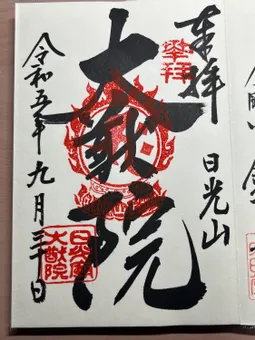 奉拝
日光山
大猷院
令和五年九月三十日
奉拝
日光山
大猷院